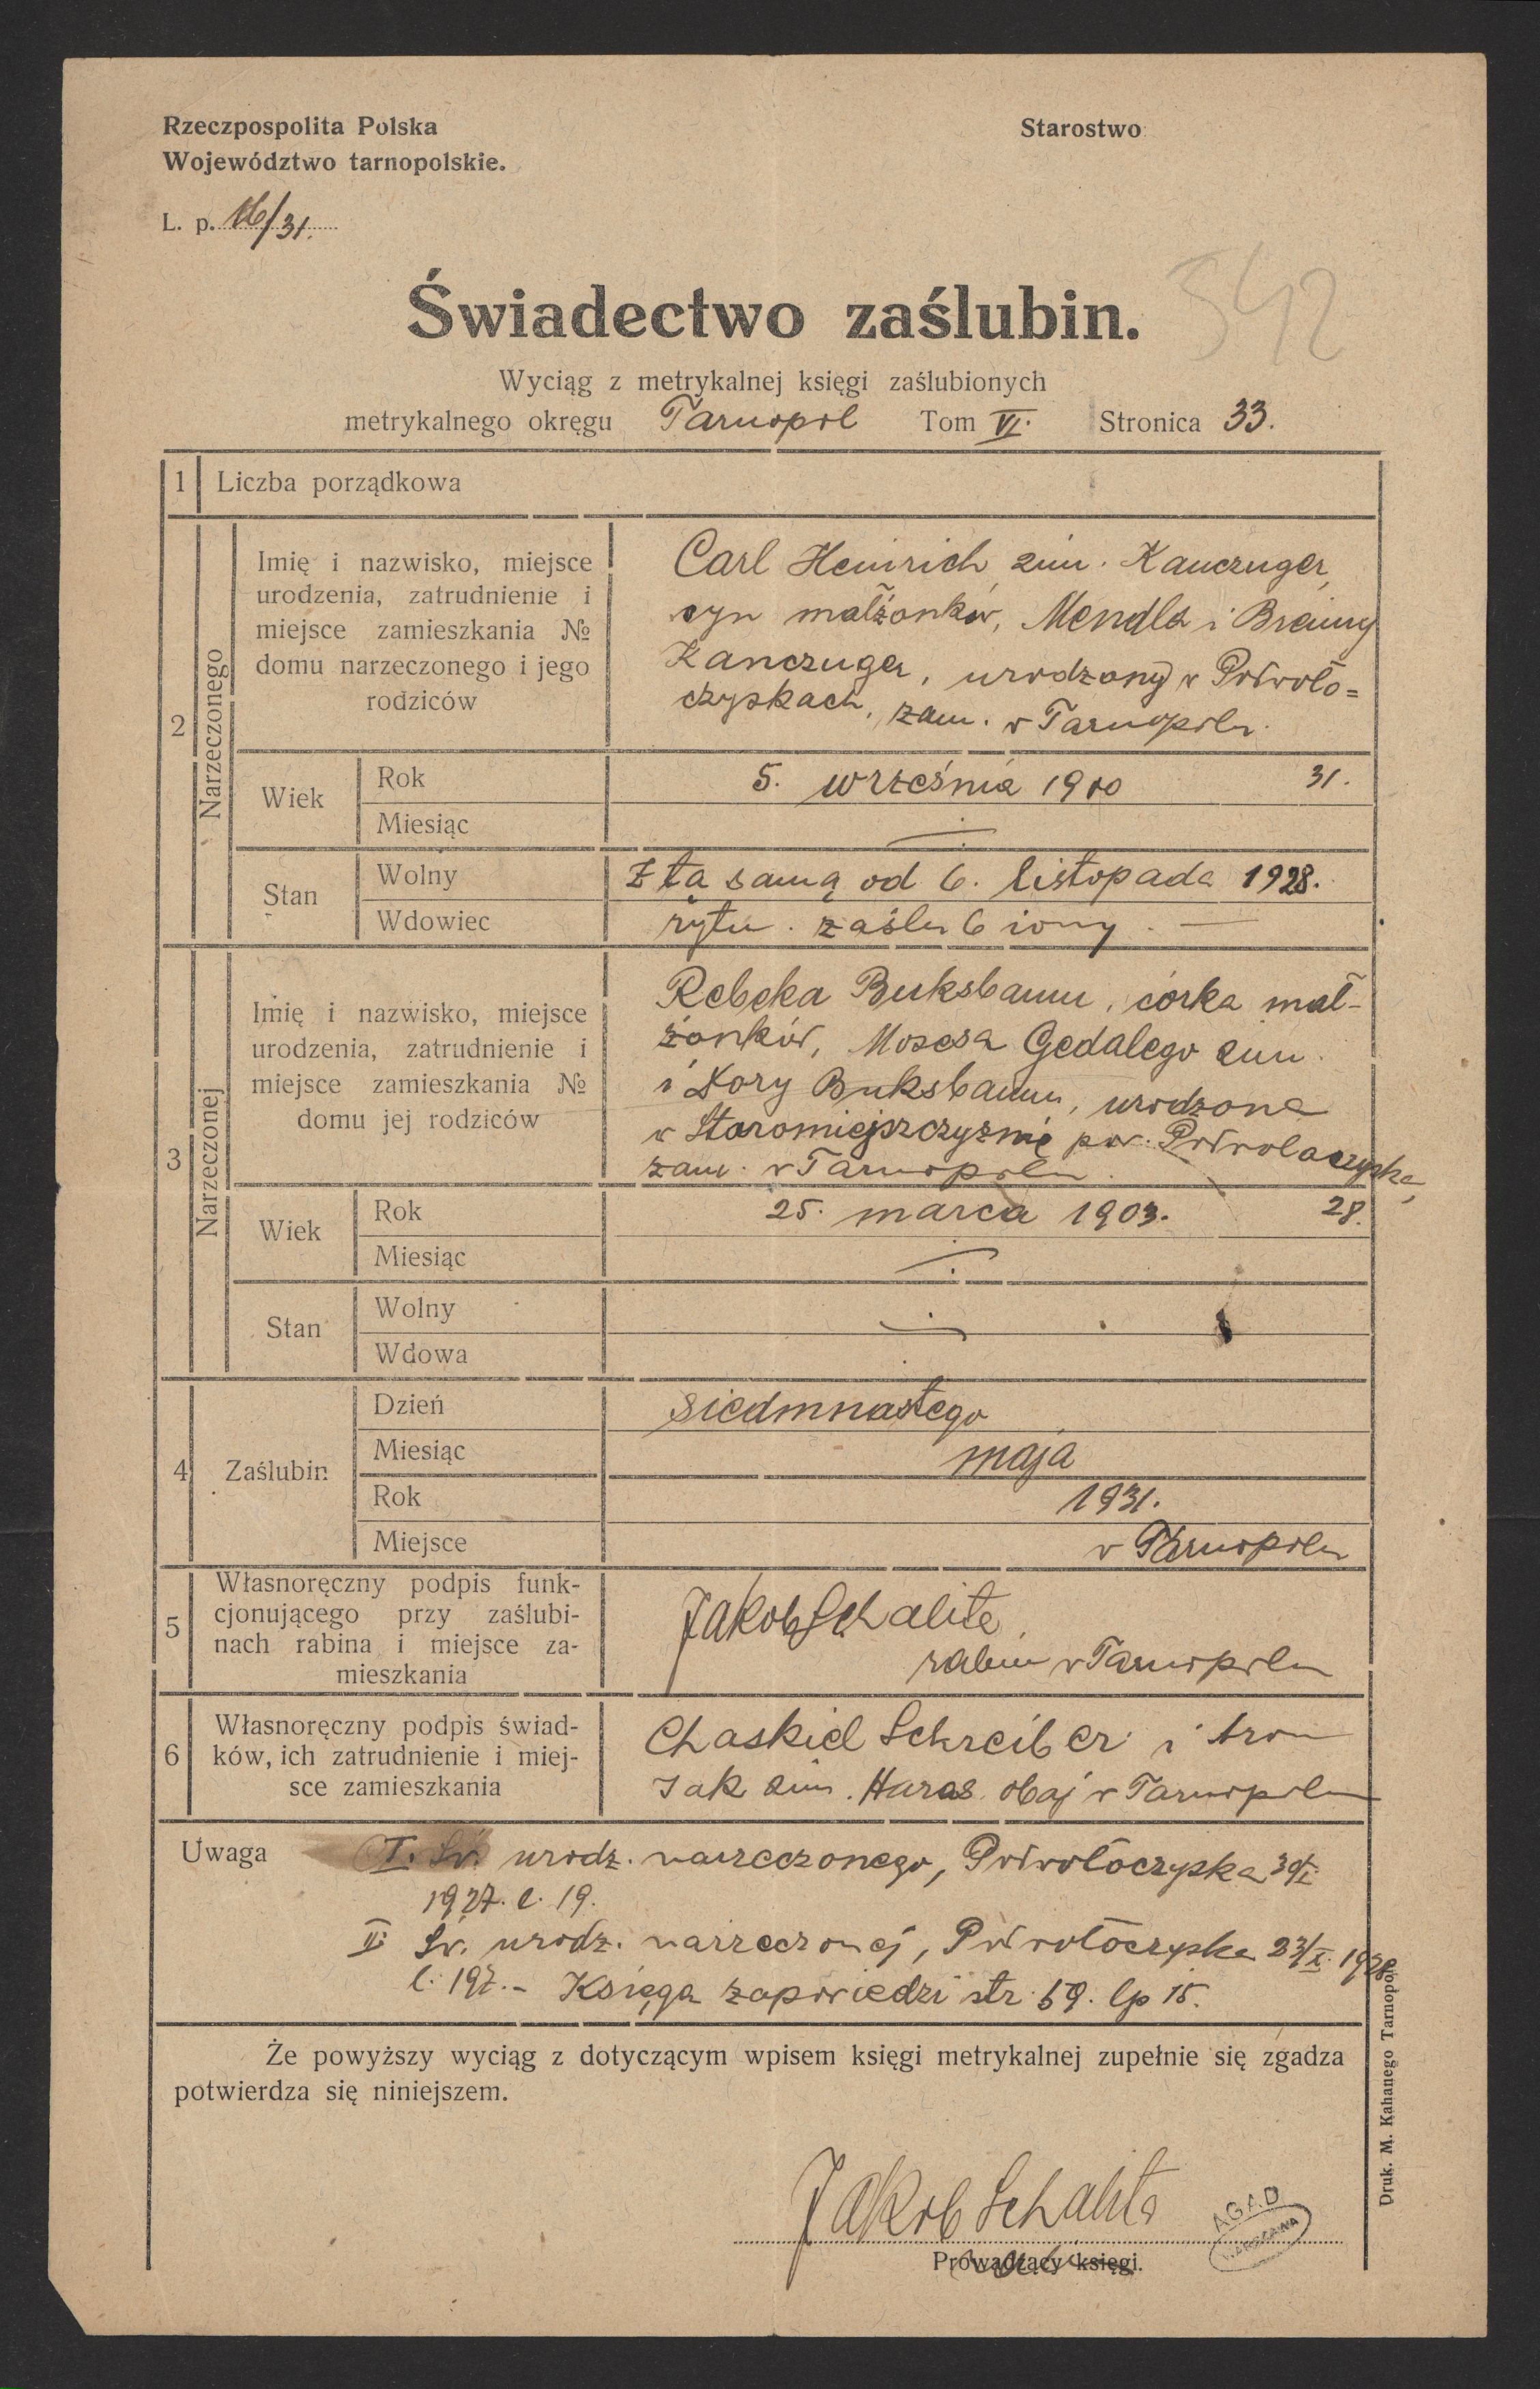 Rzeczpospolita Polska
Starostwo
Województwo tarnopolskie.
L. p. 16/31.
342
Świadectwo zaślubin.
Wyciąg z metrykalnej księgi zaślubionych
metrykalnego okręgu Tarnopol Tom VI. Stronica 33.
1 Liczba porządkowa
2 Narzeczonego
Imię i nazwisko, miejsce
urodzenia, zatrudnienie i
miejsce zamieszkania №
domu narzeczonego i jego
rodziców
Carl Heinrich 2im. Kanczuger,
syn małżonków, Mendla i Brainy
Kanczuger, urodzony w Podwoło=
czyskach, zam. w Tarnopolu.
Wiek Rok 5. września 1900 31.
Miesiąc
Stan Wolny Z tą samą od 6. listopada 1928.
Wdowiec rytu. zaślubiony. —
3 Narzeczonej
Imię i nazwisko, miejsce
urodzenia, zatrudnienie i
miejsce zamieszkania №
domu jej rodziców
Rebeka Buksbaum, córka mał-
żonków, Mosesa Gedalego 2im.
i Dory Buksbaum, urodzona
w Staromiejszczyźnie pow. Podwołoczyska,
zam. w Tarnopolu.
Wiek Rok 25. marca 1903. 28.
Miesiąc
Stan Wolny
Wdowa
4 Zaślubin Dzień siedmnastego
Miesiąc maja
Rok 1931.
Miejsce w Tarnopolu
5 Własnoręczny podpis funk-
cjonującego przy zaślubi-
nach rabina i miejsce za-
mieszkania
Jakob Schalite,
rabin w Tarnopolu
6 Własnoręczny podpis świad-
ków, ich zatrudnienie i miej-
sce zamieszkania
Chaskiel Schreiber i Aron
Jak 2im. Haras obaj w Tarnopolu
Uwaga I. Św. urodz. narzeczonego, Podwołoczyska
1927. l. 19.
II. Św. urodz. narzeczonej, Podwołoczyska 23/X. 1928
l. 197.- Księga zapowiedzi str. 59. lp 15.
Że powyższy wyciąg z dotyczącym wpisem księgi metrykalnej zupełnie się zgadza
potwierdza się niniejszem.
Jakob Schalite
Prowadzący księgi.
AGAD
WARSZAWA
Druk. M. Kahanego Tarnopol